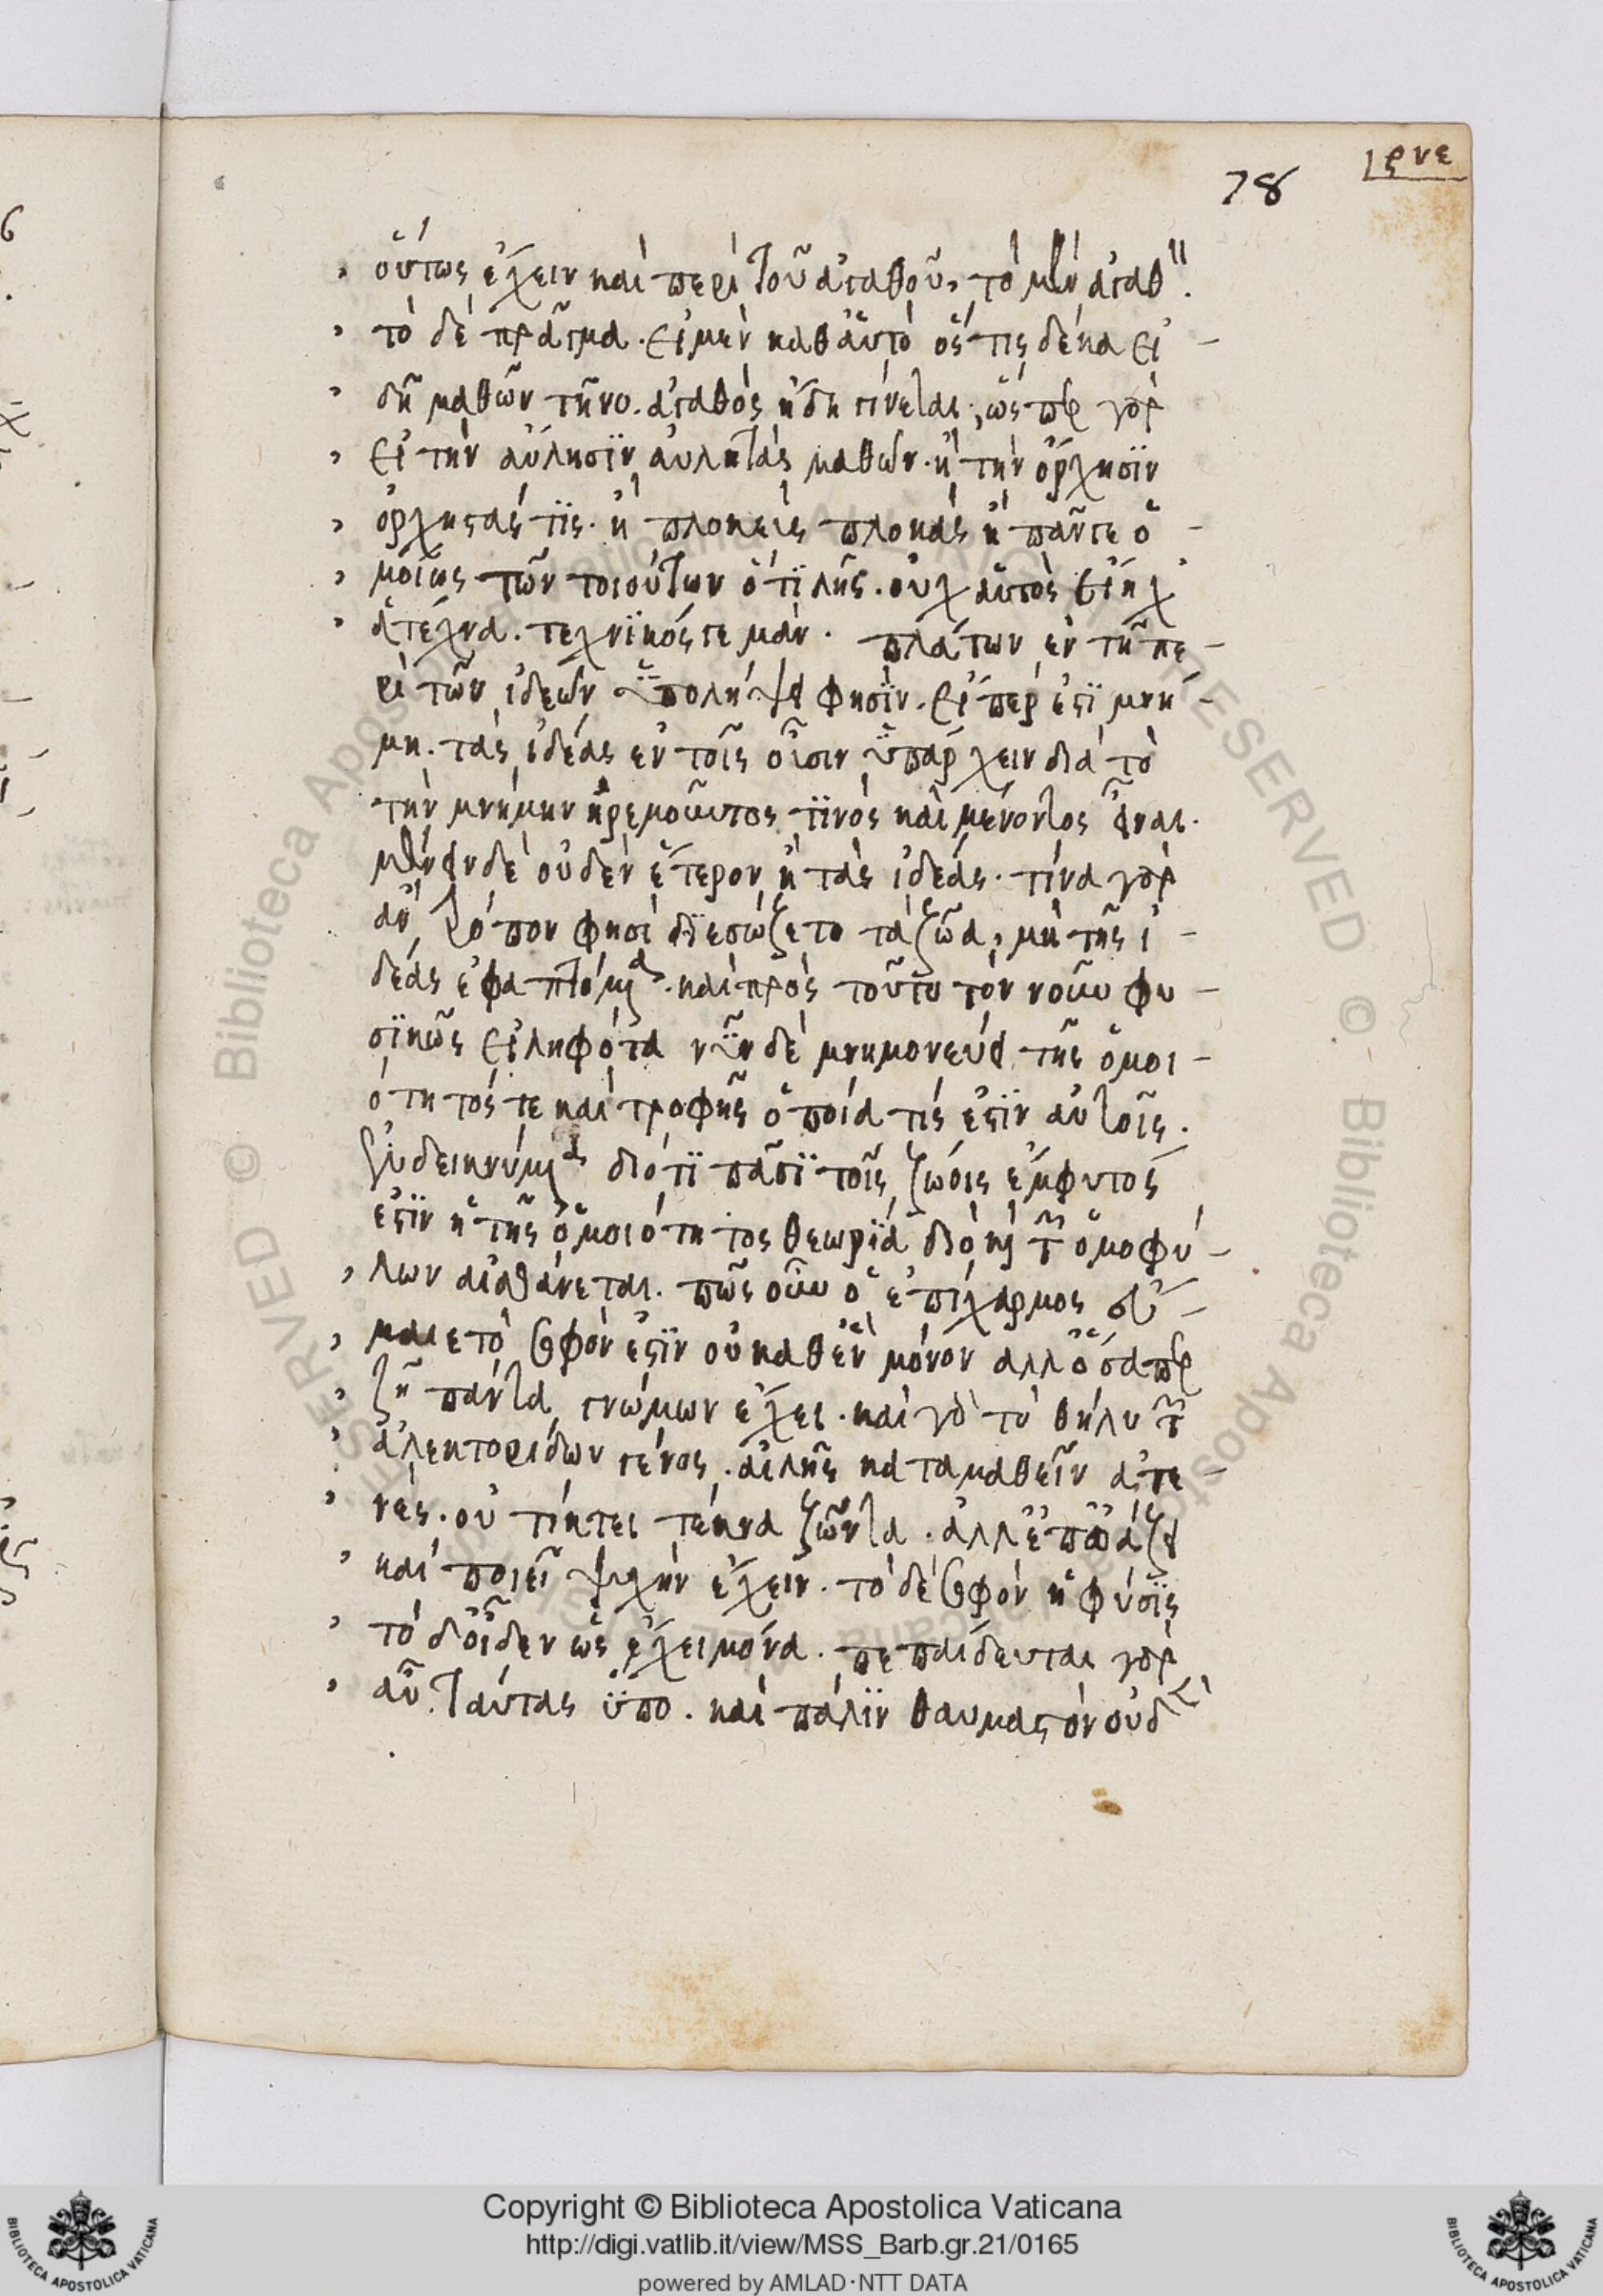 ρνε
78
οὕτως ἔχειν καὶ περὶ τοῦ ἀγαθοῦ, τὸ μὲν ἀγαθὸν.
τὸ δὲ πρᾶγμα. εἰμεν καθ' αὑτὸ ὅς τις δέκα εἰ-
δῆ μαθὼν τῆνο. ἀγαθὸς ἤδη γίνεται, ὥς περ γὰρ
εἰ τὴν αὔλησϊν αὐλητὰς μαθὼν. ἢ τὴν ὄρχησϊν
ὀρχηστάς τϊς. ἢ πλοκεὶς πλοκάς ἢ πᾶν τε ὁ-
μοίως τῶν τοιούτων ὅτϊ λῆς. οὐχ αὑτὸς εἴη χ'
ἁ τέχνα. τεχνϊκός τε μάν. πλάτων ἐν τῇ πε-
ρὶ τῶν ἰδεῶν ὑπολήψει φησϊν. εἴπερ ἐστϊ μνή-
μη. τὰς ἰδέας ἐν τοῖς οὖσιν ὑπάρχειν διὰ τὸ
τὴν μνήμην ἠρεμοῦντος τϊνὸς καὶ μένοντος εἶναι.
μένειν δὲ οὐδὲν ἕτερον ἢ τὰς ἰδέας. τίνα γὰρ
ἂν τρόπον φησὶ διεσώζετο τὰ ζῶα, μὴ τῆς ἰ-
δέας ἐφαπτόμενα. καὶ πρὸς τοῦτο τὸν νοῦν φυ-
σϊκῶς εἰληφότα νῦν δὲ μνημονεύει τῆς ὁμοι-
ότητός τε καὶ τροφῆς ὁποία τίς ἐστϊν αὐτοῖς.
ἐνδεικνύμενα διότϊ πᾶσϊ τοῖς ζώοις ἔμφυτός
ἐστϊν ἡ τῆς ὁμοιότητος θεωρϊα διὸ καὶ τῶν ὁμοφύ-
λων αἰσθάνεται. πῶς οὖν ὁ ἐπίχαρμος εὔ-
μαιε τὸ σοφόν ἐστϊν οὐ καθ' ἓν μόνον ἀλλ' ὅσαπερ
ζῇ πάντα γνώμων ἔχει. καὶ γὰρ τὸ θῆλυ τῶν
ἀλεκτορίδων γένος. αἰ λῆς καταμαθεῖν ἀτε-
νές. οὐ τίκτει τέκνα ζῶντα. ἀλλ' ἐπωάζει
καὶ ποιεῖ ψυχὴν ἔχειν. τὸ δὲ σοφὸν ἡ φύσϊς
τὸ δ' οἶδεν ὡς ἔχει μόνα. πεπαίδευται γὰρ
αὖ ταύτας ὕπο. καὶ πάλϊν θαυμαστὸν οὐδὲν
Copyright © Biblioteca Apostolica Vaticana
http://digi.vatlib.it/view/MSS_Barb.gr.21/0165
powered by AMLAD·NTT DATA